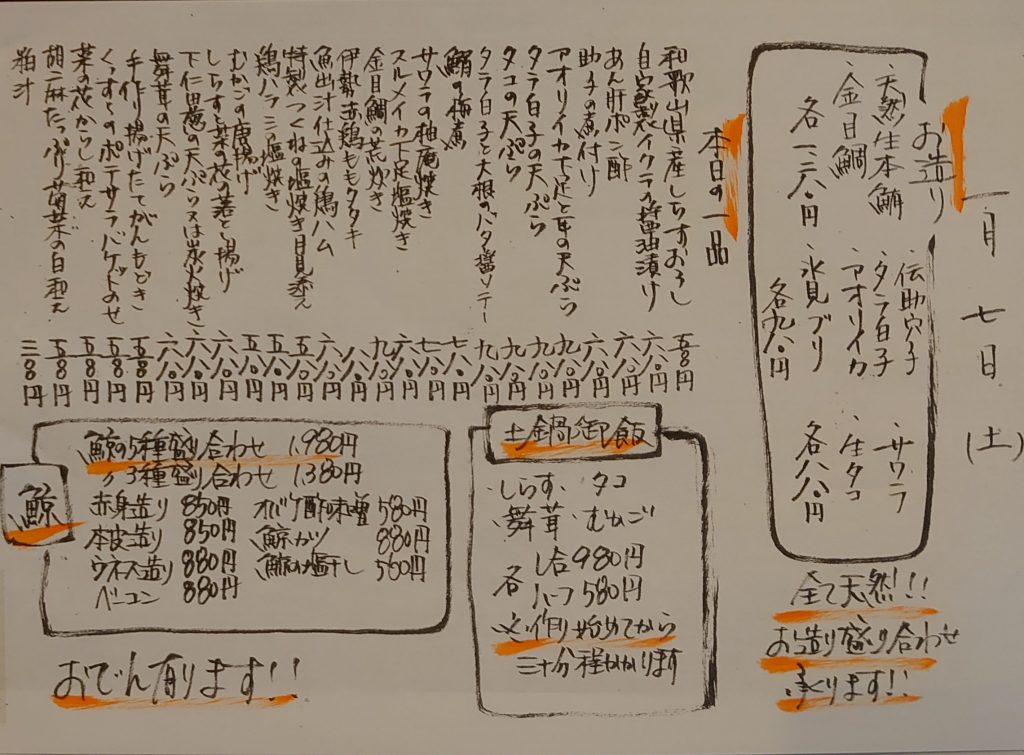 一月七日(土)
お造り
・天然生本鮪
・金目鯛
各一、二八〇円
・伝助穴子
・タラ白子
・アオリイカ
・氷見ブリ
各九八〇円
・サワラ
・生タコ
各八八〇円
全て天然!!
お造り盛り合わせ
承ります!!
本日の一品
和歌山県産しらすおろし 五八〇円
自家製イクラ醤油漬け 六八〇円
あん肝ポン酢 六八〇円
助子の煮付け 六八〇円
アオリイカ下足と耳の天ぷら 九八〇円
タラ白子の天ぷら 九八〇円
タコの天ぷら 九八〇円
タラ白子と大根のバタ醤ソテー 九八〇円
鮪の梅煮 七八〇円
サワラの柚庵焼き 七八〇円
スルメイカ下足塩焼き 六八〇円
金目鯛の荒炊き 九八〇円
伊勢赤鶏ももタタキ 八八〇円
魚出汁仕込みの鶏ハム 六八〇円
特製つくねの塩焼き月見添え 五八〇円
鶏ハラミの塩焼き 五八〇円
むかごの唐揚げ
しらすと菜の花の落と揚げ 六八〇円
下仁田葱の天ぷら又は炭火焼き 六八〇円
舞茸の天ぷら 六八〇円
手作り揚げたてがんもどき 五八〇円
くんすけのポテサラバケットのせ 五八〇円
菜の花からし和え 五八〇円
胡麻たっぷり菊菜の白和え 五八〇円
粕汁 三八〇円
土鍋御飯
・しらす ・タコ
・舞茸 ・むかご
各 1合980円
ハーフ580円
※作り始めてから
三十分程かかります
鯨
鯨の5種盛り合わせ 1,980円
〃 3種盛り合わせ 1,380円
赤身造り 850円 オバケ酢味噌 580円
本皮造り 850円 鯨カツ 880円
ウネス造り 880円 鯨の塩干し 560円
ベーコン 880円
おでん有ります!!